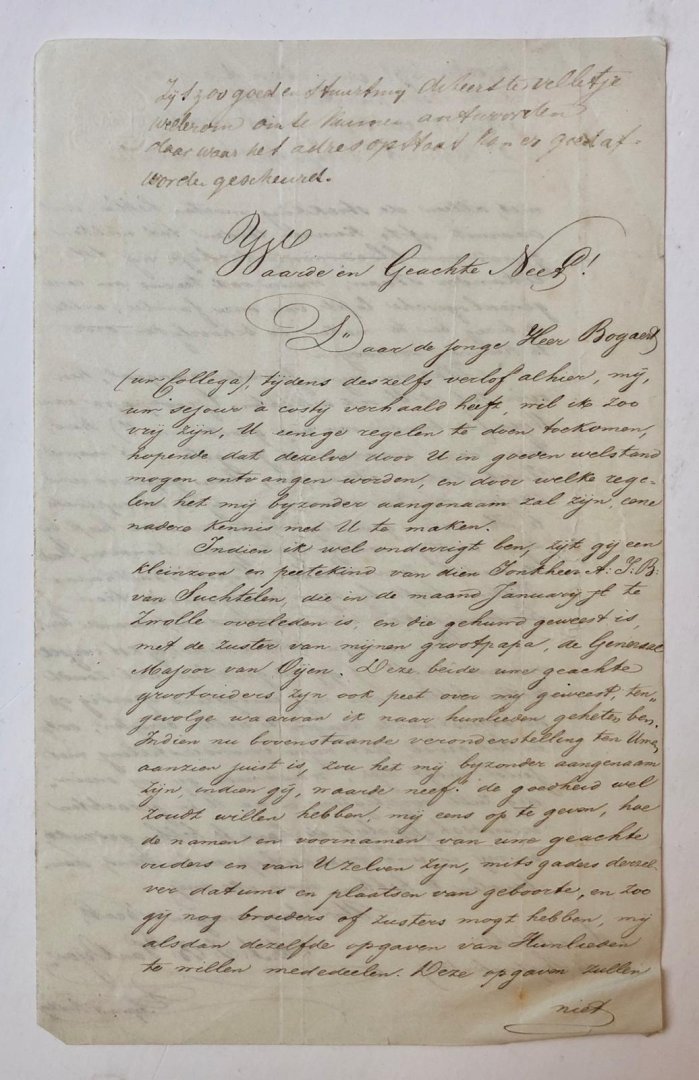 Zijt zoo goed en stuurt mij de eerste velletje
wederom om te kunnen antwoorden
daar waar het adres op staat kan er goed af-
worde gescheurd.
Waarde en Geachte Neef!
Daar de jonge Heer Bogaert
(uw Collega), tijdens deszelfs verlof alhier, mij,
uw sejour à costy verhaald heeft, wil ik zoo
vrij zijn, U eenige regelen te doen toekomen,
hopende dat dezelve door U in goeden welstand
mogen ontvangen worden, en door welke rege-
len het mij byzonder aangenaam zal zijn, eene
nadere kennis met U te maken.
Indien ik wel onderrigt ben, zijt gij een
kleinzoon en peetekind van dien Jonkheer A: J: B:
van Suchtelen, die in de maand January jl te
Zwolle overleden is, en die gehuwd geweest is,
met de zuster van mijnen grootpapa, de Generaal
Majoor van Oijen. Deze beide uwe geachte
grootouders zijn ook peet over my geweest, ten"
gevolge waarvan ik naar hunlieden geheten ben.
Indien nu bovenstaande veronderstelling ten Uwen
aanzien juist is, zou het my byzonder aangenaam
zijn, indien gij, waarde neef! de goedheid wel
zoudt willen hebben, mij eens op te geven, hoe
de namen en voornamen van uwe geachte
ouders en van Uzelven zijn, mitsgaders derzel-
ver datums en plaatsen van geboorte, en zoo
gij nog broeders of zusters mogt hebben, mij
alsdan dezelfde opgaven van Hunlieden
te willen mededeelen. Deze opgaven zullen
niet